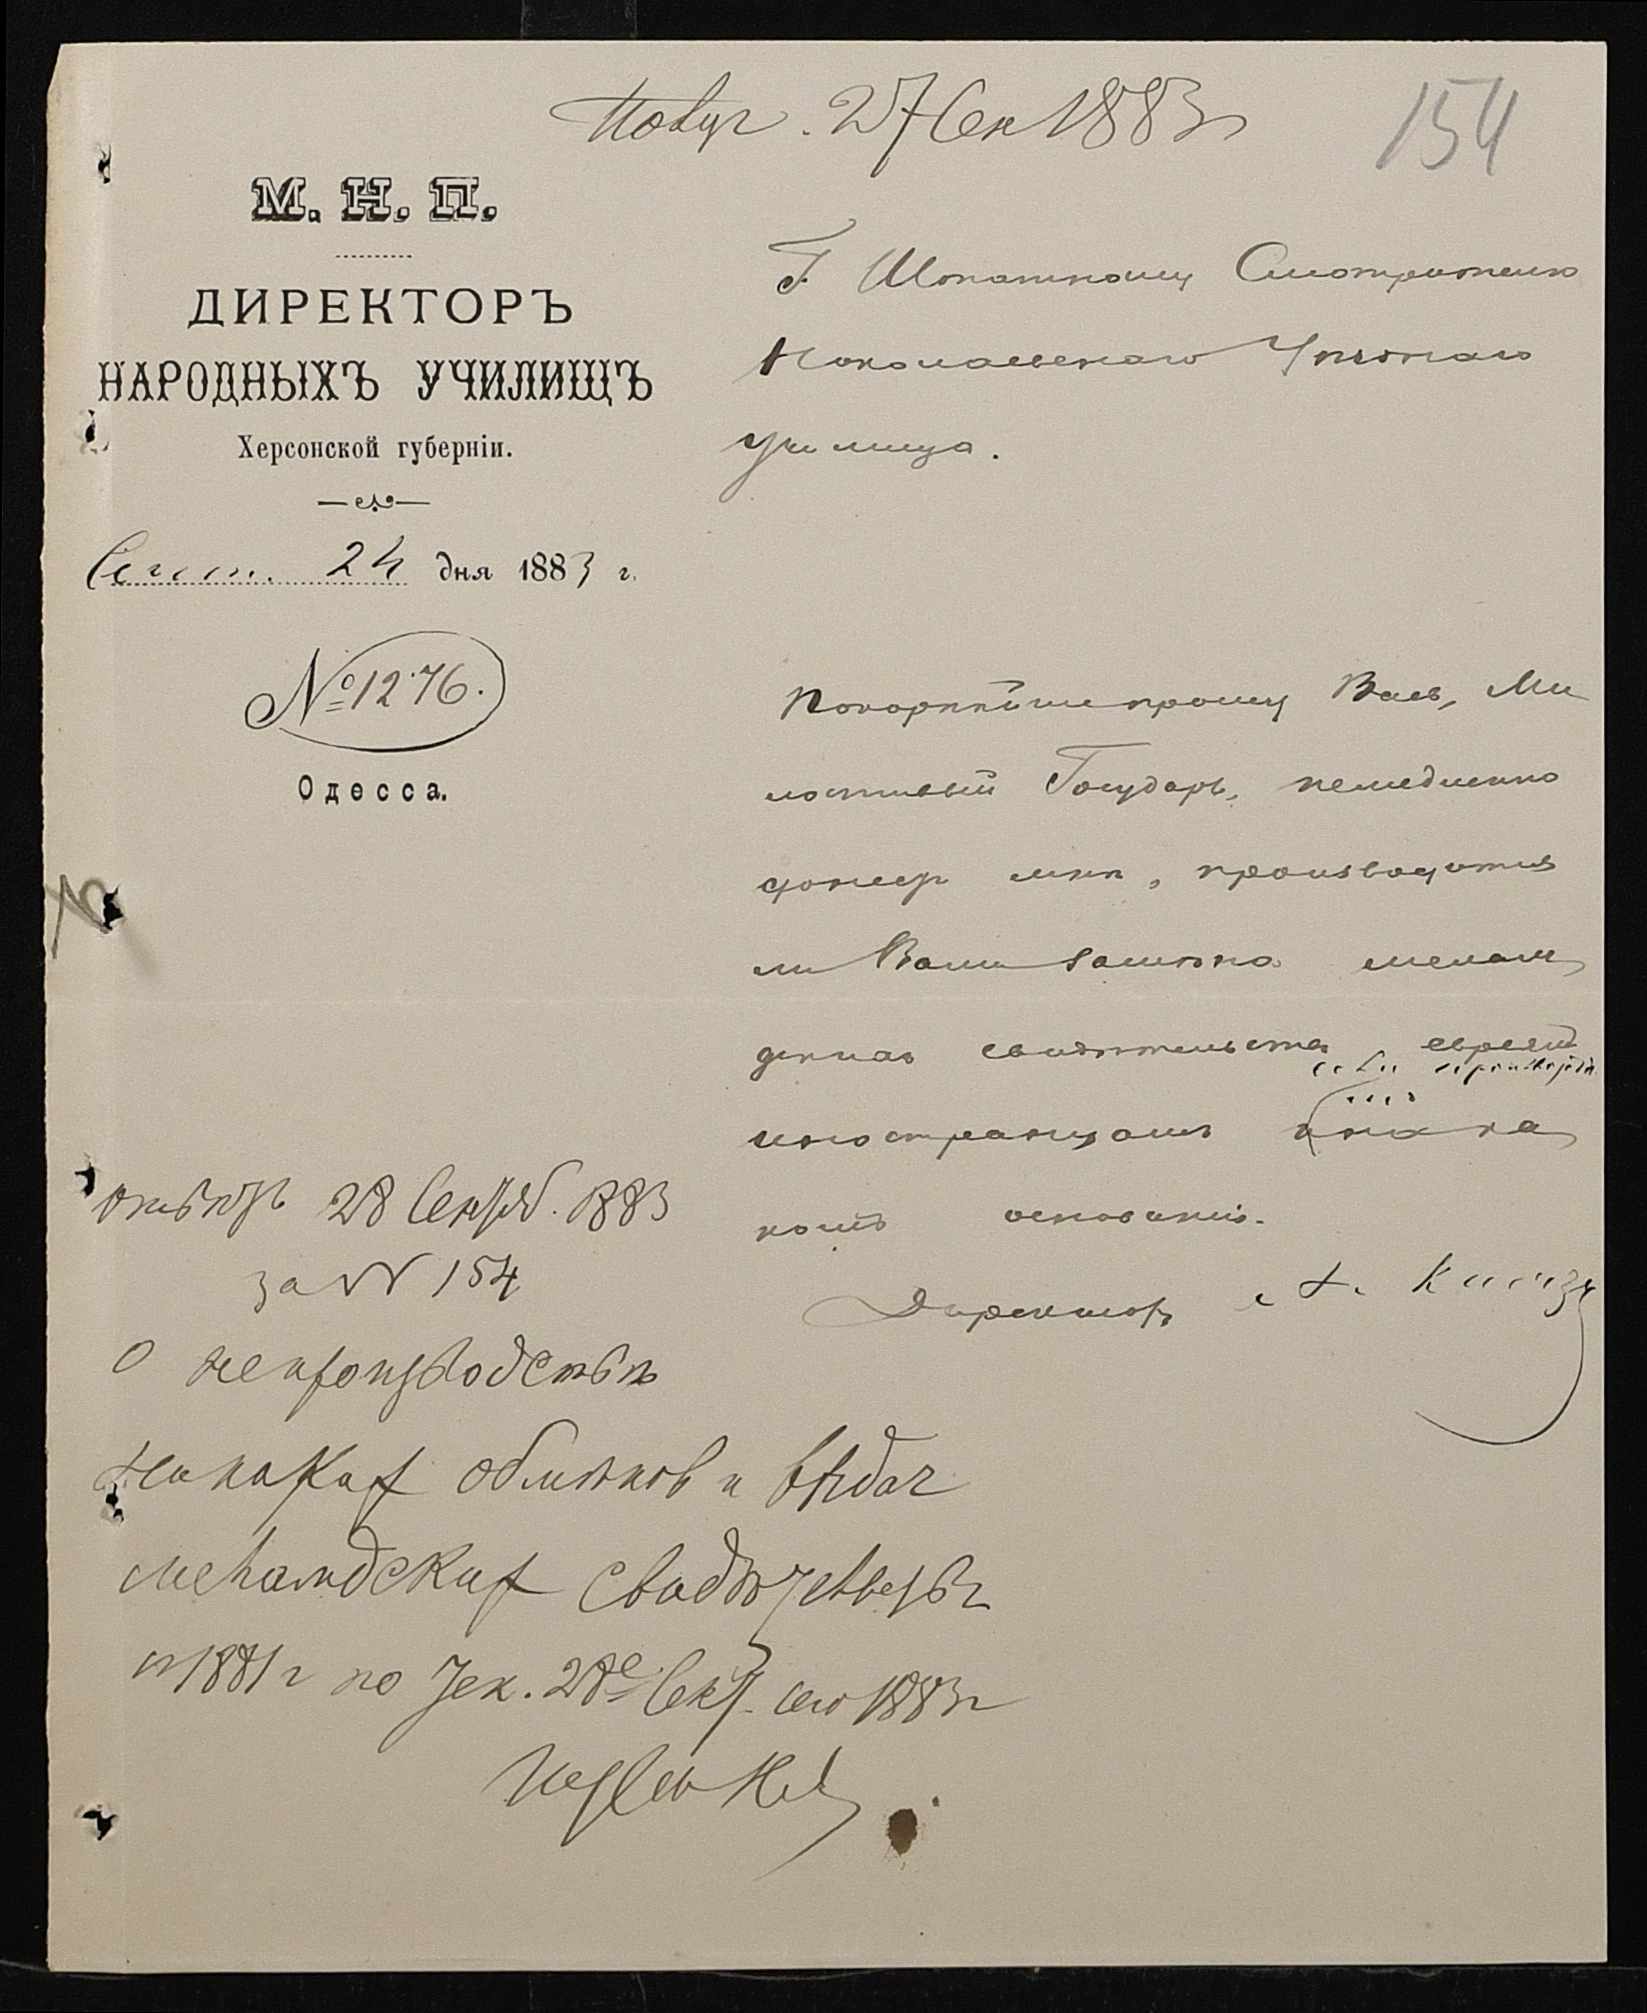 Получ. 27 Сен 1883 г
154
М. Н. П.
ДИРЕКТОРЪ
НАРОДНЫХЪ УЧИЛИЩЪ
Херсонской губерніи.
Сент. 24 дня 1883 г.
№ 1276.
Одесса.
Г. Штатному Смотрителю
Николаевскаго Уѣзднаго
училища.
Покорнѣйше прошу Васъ, Ми
лостивый Государь, немедленно
донести мнѣ, производится
ли Вами замѣна меламъ
дскихъ свидѣтельствъ евреямъ
если производится
иностранцамъ и на ка
комъ основаніи.
Директоръ А.
Отвѣтъ 28 Сентяб. 1883
за № 154
О непроизводствѣ
никаких обмѣнов и выдач
меламдских свидѣтельствъ
съ 1881 г по тек. 28е Сент. сего 1883 г